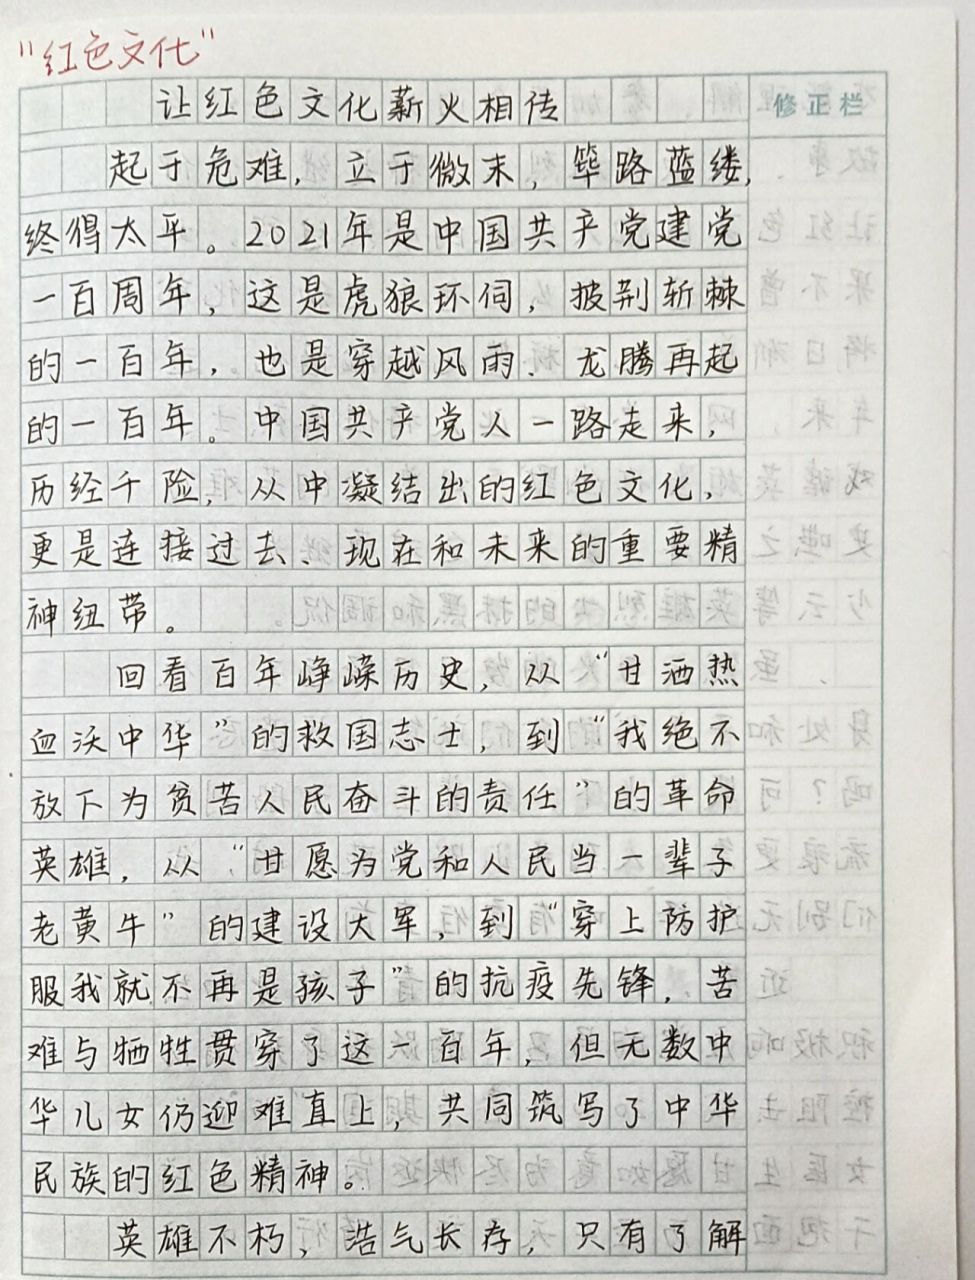 "红色文化"
让红色文化薪火相传
修正栏
起于危难，立于微末，筚路蓝缕，
终得太平。2021年是中国共产党建党
一百周年，这是虎狼环伺，披荆斩棘
的一百年，也是穿越风雨、龙腾再起
的一百年。中国共产党人一路走来，
历经千险，从中凝结出的红色文化，
更是连接过去、现在和未来的重要精
神纽带。
回看百年峥嵘历史，从"甘洒热
血沃中华"的救国志士，到"我绝不
放下为贫苦人民奋斗的责任"的革命
英雄，从"甘愿为党和人民当一辈子
老黄牛"的建设大军，到"穿上防护
服我就不再是孩子"的抗疫先锋，苦
难与牺牲贯穿了这一百年，但无数中
华儿女仍迎"难"直上，共同筑写了中华
民族的红色精神。
英雄不朽，浩气长存，只有了解